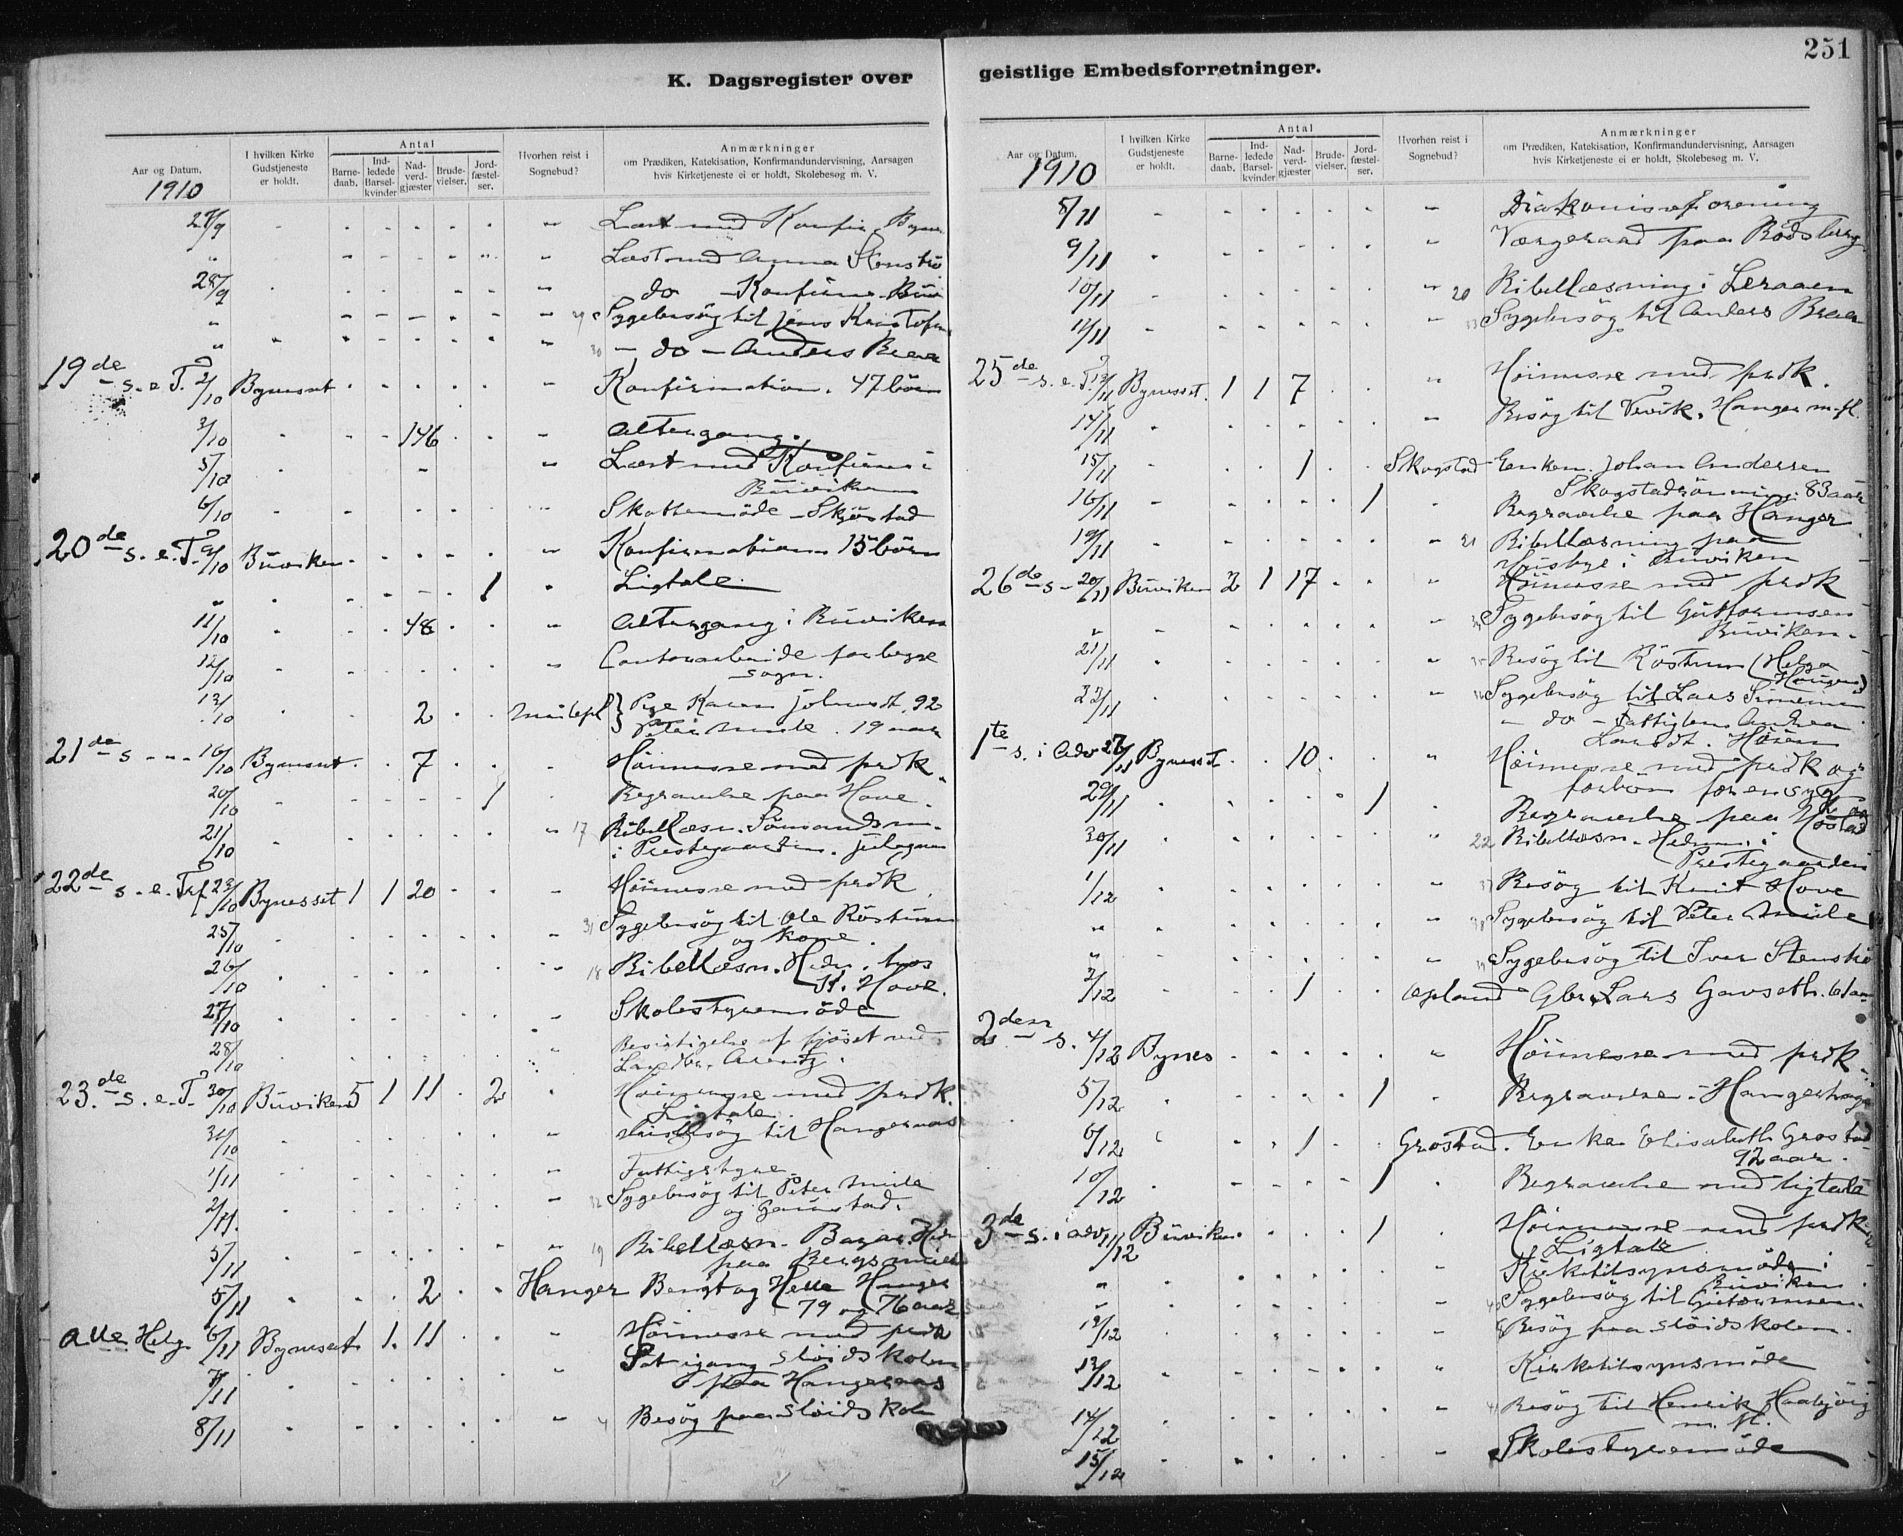 K. Dagsregister over
Aar og Datum.
I hvilken Kirke Gudstjeneste er holdt.
Antal
Barne-daab.
Ind-ledede Barsel-kvinder
Nad-verd-gjæster
Brude-vielser.
Jord-fæstel-ser.
Hvorhen reist i Sognebud?
Anmærkninger
om Prædiken, Katekisation, Konfirmandundervisning, Aarsagen
hvis Kirketjeneste ei er holdt, Skolebesøg m. V.
1910
27/9 Læst med Konfir. Bynes
" Læst med Anna
28/9 " do - Konfirm. Buv
" " 29 Sygebesøg til Jens Kristofers
" " 30 - do - Anders Brea
19de s. e. T. 2/10 Bynesset " Konfirmation. 47 børn
3/10 146 " Altergang.
5/10 " Læst med Konfirm i
Buviken
6/10 " Skattemøde - Skjøstad
20de s. e. T. 9/10 Buviken " Konfirmation 15 børn
" 1 " Ligtale.
11/10 48 " Altergang i Buviken
12/10 " Contorarbeide for begge
sogn.
13/10 2 Mulepl } Pige Karen Johnsdt. 92
Peter Mule. 19 aar
21de s - - 16/10 Bynesset 7 Høimesse med prdk.
20/10 1 Begravelse paa Hove.
21/10 " 17 Bibellæsn. Sømandsm.
i Prestegaarden.
22de s. e. Tr 23/10 Bynesset 1 1 20 Høimesse med prdk
25/10 31 Sygebesøg til Ole Røstum
og kone.
26/10 " 18 Bibellæsn. Hedn. hos
K. Hove.
27/10 " Skolestyremøde
28/10 " Besigtigelse af fjøset med
23.de s. e. T. 30/10 Buviken 5 1 11 2 Høimesse med prdk.
Ligtale.
31/10 " til Hangeraas
1/11 " Fattigstyre.
2/11 " 32 Sygebesøg til Peter Mule
og Gaustad.
5/11 " 19 Bibellæsn. Hedn
paa Bergsmule
5/11 2 Hanger Bengt og Helle Hanger
79 og 76 aar
Alle Helg. 6/11 Bynesset 1 1 11 Høimesse med prdk
7/11 " Sat igang sløidskolen
paa Hangeraas
8/11 " Besøg paa sløidskolen
geistlige Embedsforretninger.
251
Aar og Datum.
I hvilken Kirke Gudstjeneste er holdt.
Antal
Barne-daab.
Ind-ledede Barsel-kvinder
Nad-verd-gjæster
Brude-vielser.
Jord-fæstel-ser.
Hvorhen reist i Sognebud?
Anmærkninger
om Prædiken, Katekisation, Konfirmandundervisning, Aarsagen
hvis Kirketjeneste ei er holdt, Skolebesøg m. V.
1910
8/11 " Diakonisseforening
9/11 " Værgeraad paa Rødsberg
10/11 " 20 Bibellæsning i Leraaen
12/11 " 33 Sygebesøg til Anders Brea
25de s. e. T. 13/11 Bynesset. 1 1 7 " Høimesse med prdk.
14/11 " Besøg til Vevik. Hanger m. fl.
15/11 1 Skogstad Enkem. Johan Andersen
Skogstadrønning. 83 aar
16/11 1 Begravelse paa Hanger
19/11 " 21 Bibellæsning paa
Husbye i Buviken
26de s - 20/11 Buviken 2 1 17 " Høimesse med prdk
" " 34 Sygebesøg til Guttormsen
Buviken.
21/11 " 35 Besøg til Røstum (Helga
Haugen)
22/11 " 36 Sygebesøg til Lars Simensen
- do - Fattiglem Andrea
Larsdt.
1te s. i Adv 27/11 Bynesset 10 " Høimesse med prdk og
forbøn for en syg
29/11 1 Begravelse paa
30/11 " 22 Bibellæsn. Hedn. i
Prestegaarden
1/12 " 37 Besøg til Knut Hove
" " 38 Sygebesøg til Peter Mule
" " 39 Sygebesøg til Iver
2/12 1 Opland Gbr. Lars Gavseth. 61 aar
2den s. 4/12 Bynes " Høimesse med prdk.
5/12 1 Begravelse. Hangerhage
6/12 1 Grostad. Enke Elisabeth Grostad
92 aar.
10/12 1 Begravelse med ligtale
3de s. i adv 11/12 Buviken. 1 Høimesse med prdk
Ligtale
" " Kirketilsynsmøde i
Buviken
" " 40 Sygebesøg til Guttormsen.
12/12 " Besøg paa sløidskolen.
13/12 " Kirketilsynsmøde
14/12 " 41 Besøg til Henrik Haabjørg
m. fl.
15/12 " Skolestyremøde